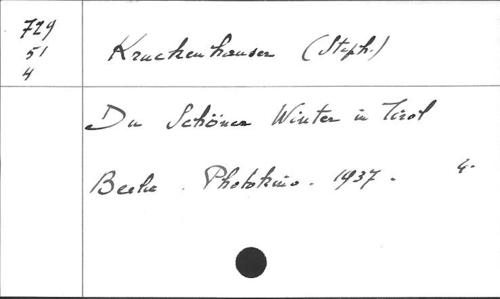 729
51
4
Kruckenhauser (Steph.)
Du Schöner Winter in Tirol
Berlin. Photokino. 1937. 4°